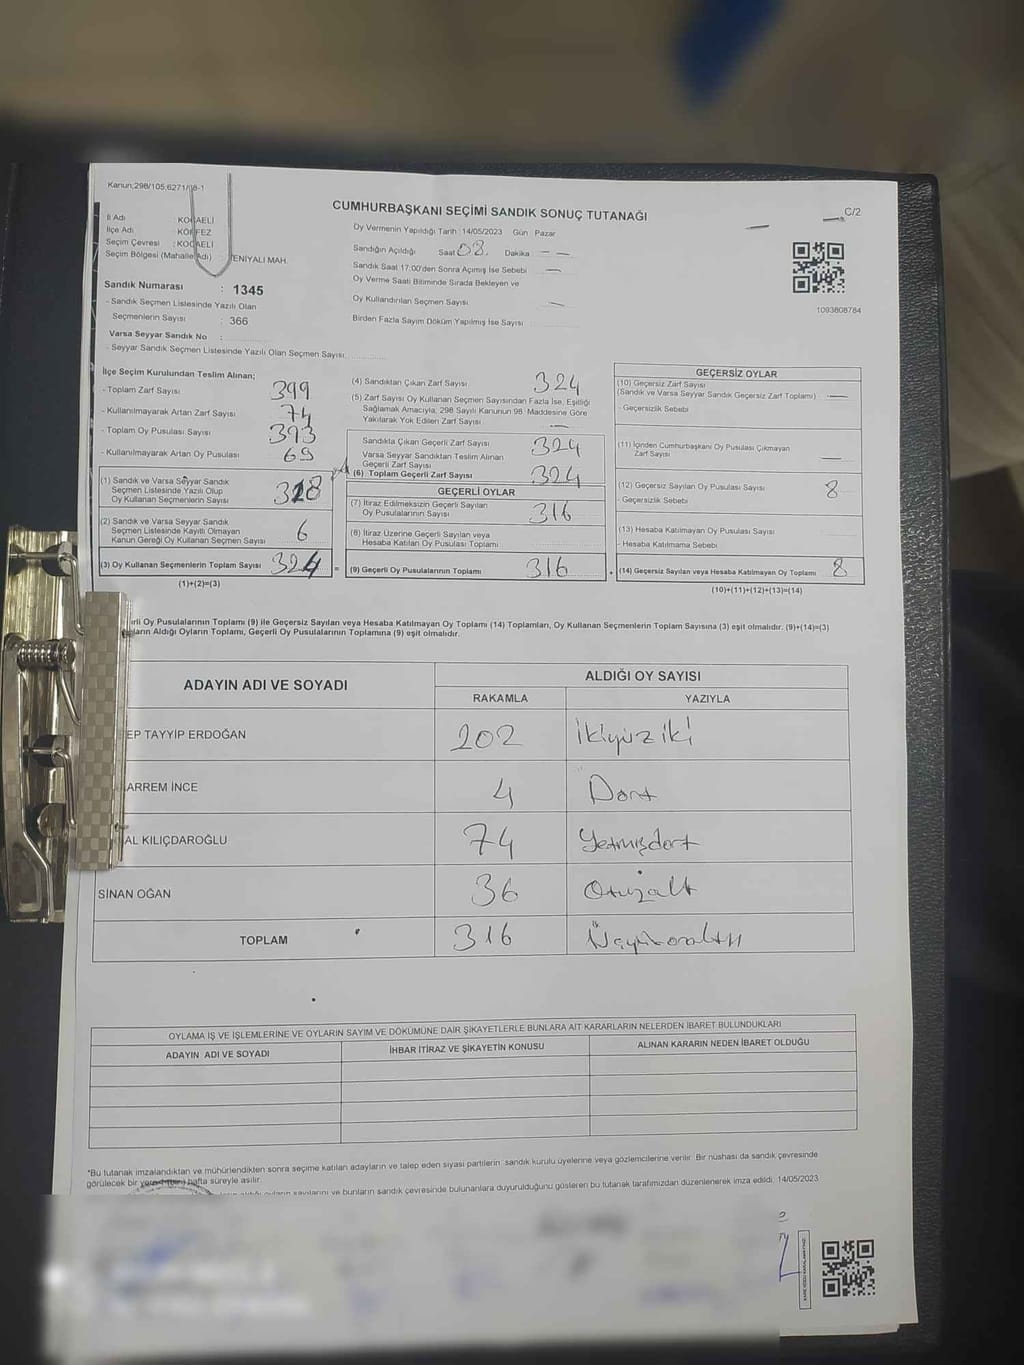 Kanun;298/105,6271/
CUMHURBAŞKANI SEÇİMİ SANDIK SONUÇ TUTANAĞI
C/2
İl Adı : KOCAELİ
İlçe Adı : KÖRFEZ
Seçim Çevresi : KOCAELİ
Seçim Bölgesi (Mahalle Adı) : YENİYALI MAH.
Oy Vermenin Yapıldığı Tarih : 14/05/2023 Gün : Pazar
Sandığın Açıldığı Saat 08. Dakika — —
Sandık Saat 17:00'den Sonra Açımış İse Sebebi —
Oy Verme Saati Bitiminde Sırada Bekleyen ve
Oy Kullandırılan Seçmen Sayısı —
Birden Fazla Sayım Döküm Yapılmış İse Sayısı
1093808784
Sandık Numarası : 1345
- Sandık Seçmen Listesinde Yazılı Olan
Seçmenlerin Sayısı : 366
Varsa Seyyar Sandık No :
- Seyyar Sandık Seçmen Listesinde Yazılı Olan Seçmen Sayısı:
İlçe Seçim Kurulundan Teslim Alınan;
- Toplam Zarf Sayısı 399
- Kullanılmayarak Artan Zarf Sayısı 74
- Toplam Oy Pusulası Sayısı 393
- Kullanılmayarak Artan Oy Pusulası 69
(1) Sandık ve Varsa Seyyar Sandık
Seçmen Listesinde Yazılı Olup
Oy Kullanan Seçmenlerin Sayısı 318
(2) Sandık ve Varsa Seyyar Sandık
Seçmen Listesinde Kayıtlı Olmayan
Kanun Gereği Oy Kullanan Seçmen Sayısı 6
(3) Oy Kullanan Seçmenlerin Toplam Sayısı 324 =
(1)+(2)=(3)
(4) Sandıktan Çıkan Zarf Sayısı 324
(5) Zarf Sayısı Oy Kullanan Seçmen Sayısından Fazla İse, Eşitliği
Sağlamak Amacıyla, 298 Sayılı Kanunun 98. Maddesine Göre
Yakılarak Yok Edilen Zarf Sayısı —
Sandıkla Çıkan Geçerli Zarf Sayısı 324
Varsa Seyyar Sandıktan Teslim Alınan
Geçerli Zarf Sayısı
(6) Toplam Geçerli Zarf Sayısı 324
GEÇERLİ OYLAR
(7) İtiraz Edilmeksizin Geçerli Sayılan
Oy Pusulalarının Sayısı 316
(8) İtiraz Üzerine Geçerli Sayılan veya
Hesaba Katılan Oy Pusulası Toplamı
(9) Geçerli Oy Pusulalarının Toplamı 316
GEÇERSİZ OYLAR
(10) Geçersiz Zarf Sayısı
(Sandık ve Varsa Seyyar Sandık Geçersiz Zarf Toplamı) —
- Geçersizlik Sebebi
(11) İçinden Cumhurbaşkanı Oy Pusulası Çıkmayan
Zarf Sayısı —
(12) Geçersiz Sayılan Oy Pusulası Sayısı 8
- Geçersizlik Sebebi
(13) Hesaba Katılmayan Oy Pusulası Sayısı
- Hesaba Katılmama Sebebi
(14) Geçersiz Sayılan veya Hesaba Katılmayan Oy Toplamı 8
(10)+(11)+(12)+(13)=(14)
rli Oy Pusulalarının Toplamı (9) ile Geçersiz Sayılan veya Hesaba Katılmayan Oy Toplamı (14) Toplamları, Oy Kullanan Seçmenlerin Toplam Sayısına (3) eşit olmalıdır. (9)+(14)=(3)
ların Aldığı Oyların Toplamı, Geçerli Oy Pusulalarının Toplamına (9) eşit olmalıdır.
ADAYIN ADI VE SOYADI
ALDIĞI OY SAYISI
RAKAMLA YAZIYLA
EP TAYYİP ERDOĞAN 202 İkiyüz iki
ARREM İNCE 4 Dört
AL KILIÇDAROĞLU 74 Yetmişdört
SİNAN OĞAN 36 Otuzaltı
TOPLAM 316 Üçyüzonaltı
OYLAMA İŞ VE İŞLEMLERİNE VE OYLARIN SAYIM VE DÖKÜMÜNE DAİR ŞİKAYETLERLE BUNLARA AİT KARARLARIN NELERDEN İBARET BULUNDUKLARI
ADAYIN ADI VE SOYADI İHBAR İTİRAZ VE ŞİKAYETİN KONUSU ALINAN KARARIN NEDEN İBARET OLDUĞU
*Bu tutanak imzalandıktan ve mühürlendikten sonra seçime katılan adayların ve talep eden siyasi partilerin sandık kurulu üyelerine veya gözlemcilerine verilir. Bir nüshası da sandık çevresinde
görülecek bir yere 1 (bir) hafta süreyle asılır.
aldığı oyların sayılarını ve bunların sandık çevresinde bulunanlara duyurulduğunu gösteren bu tutanak tarafımızdan düzenlenerek imza edildi. 14/05/2023